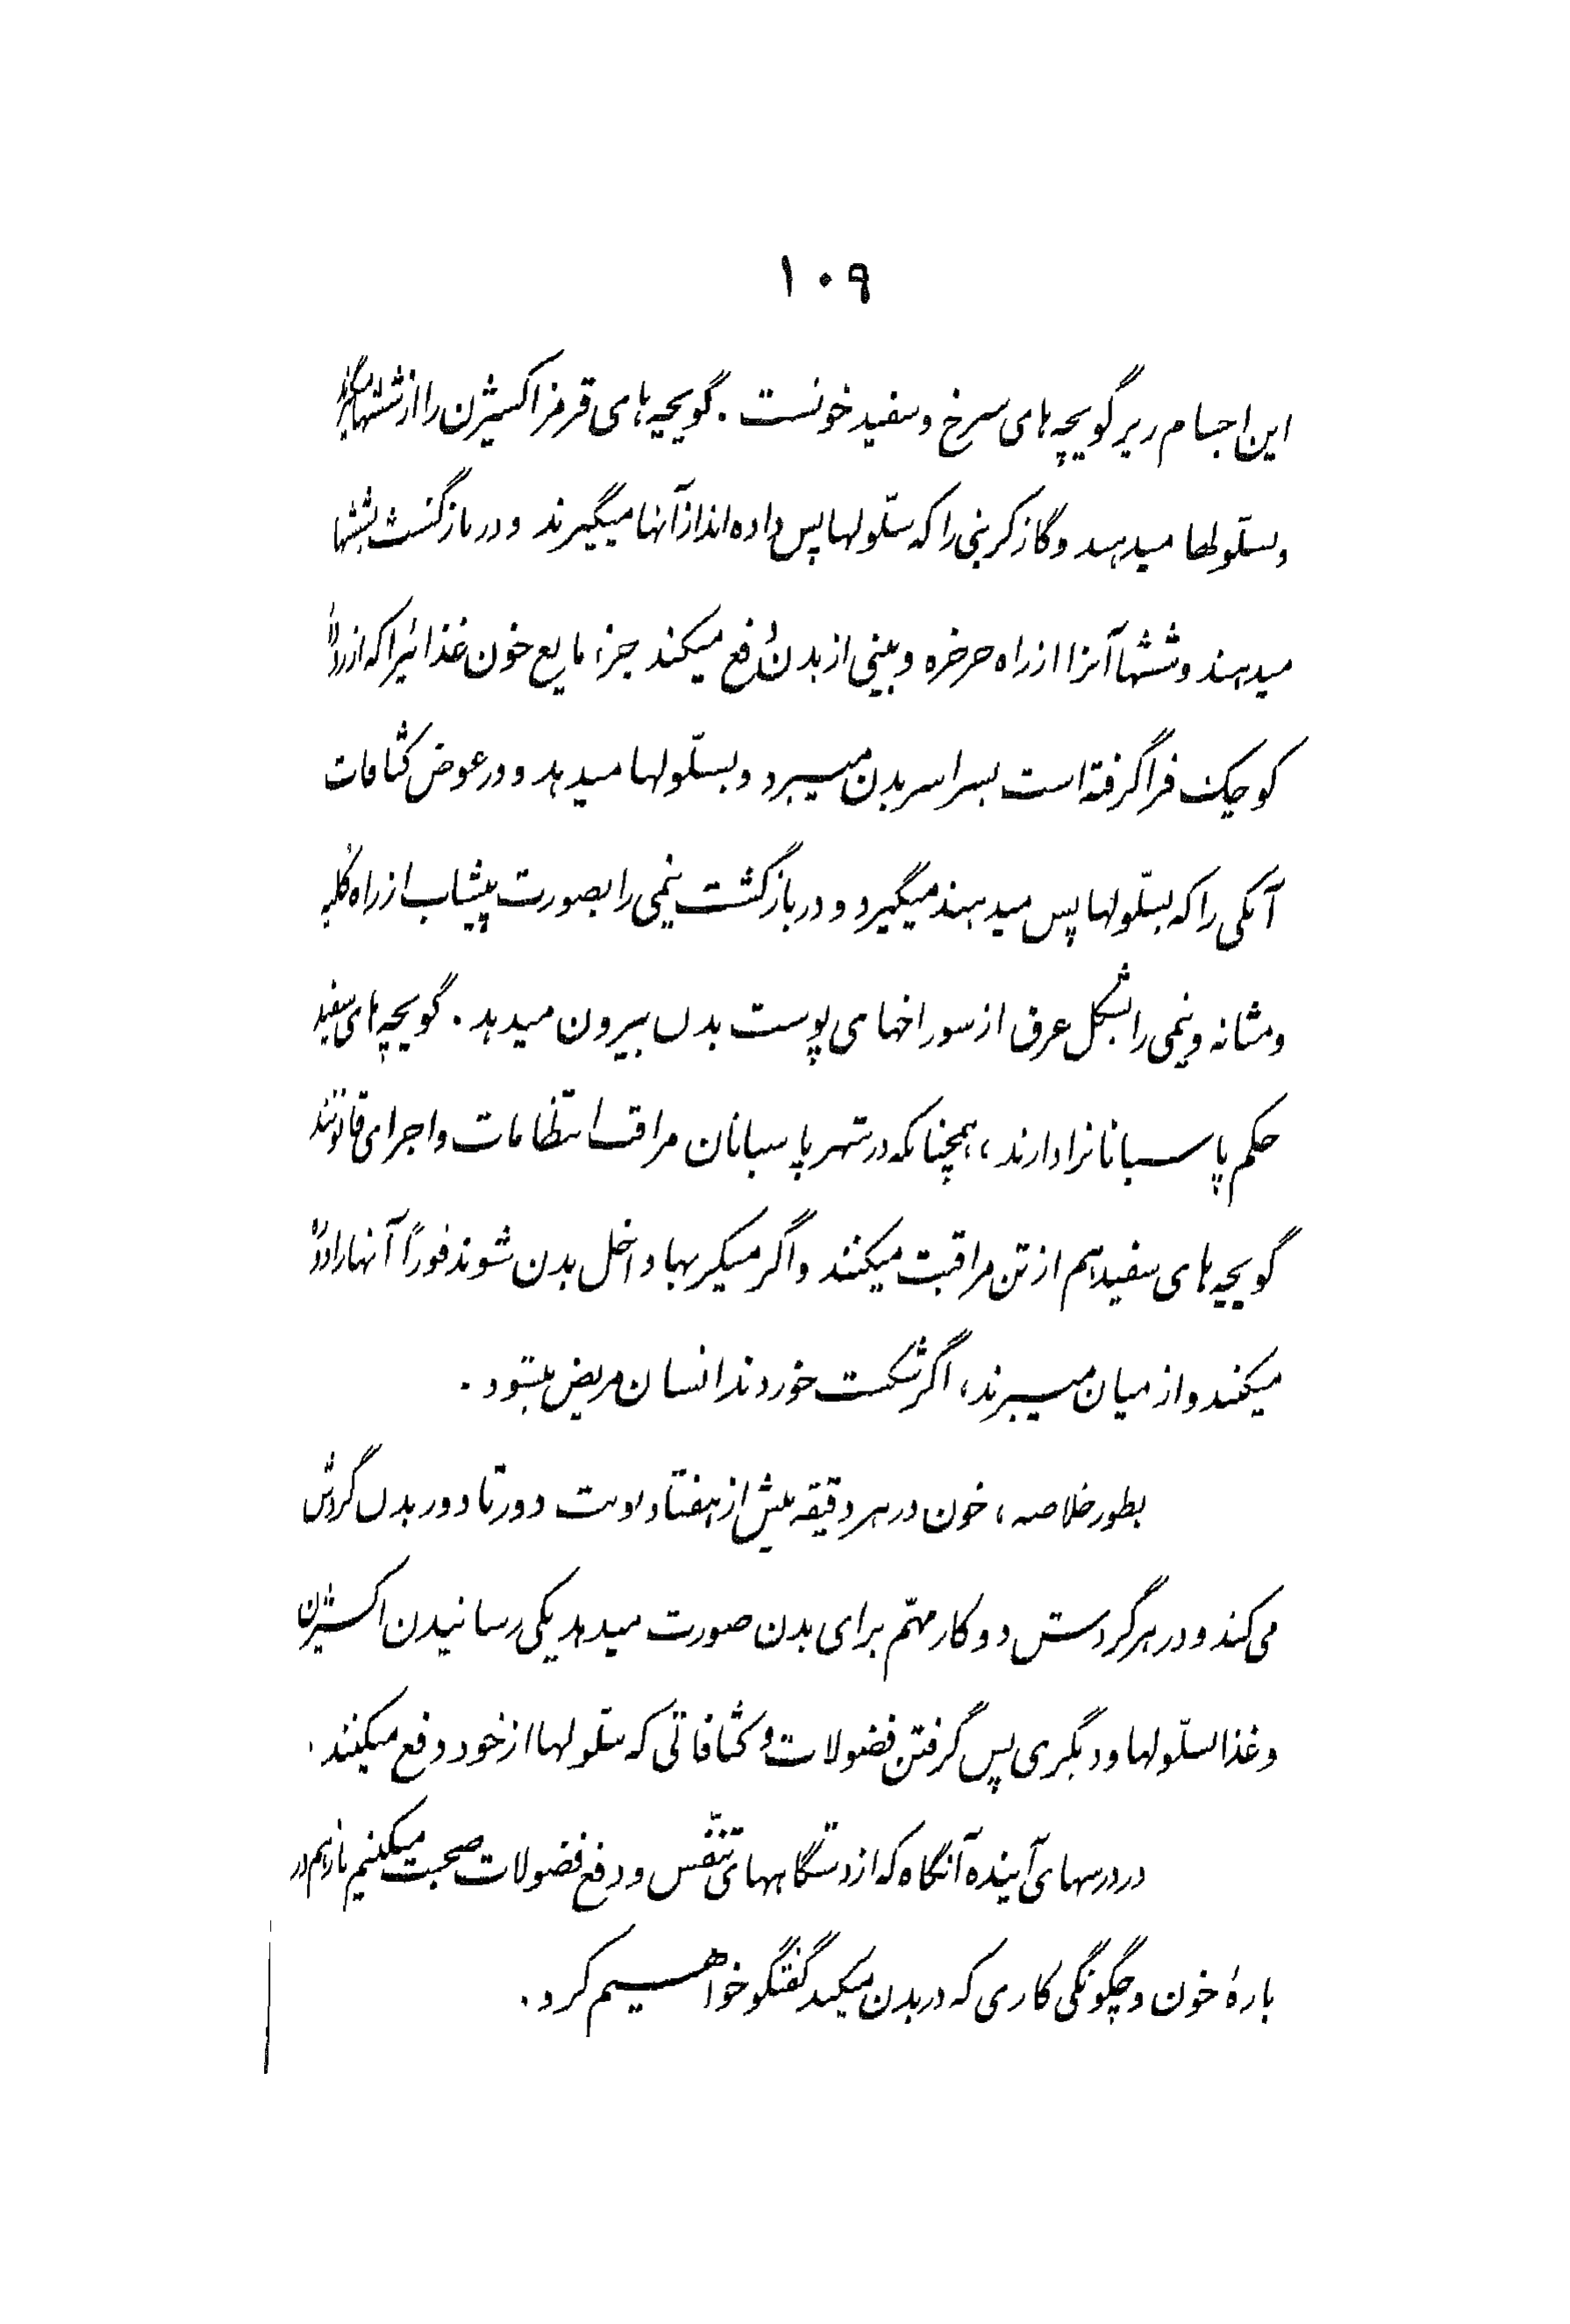 ۱۰۹
این اجسام ریر گویچه‌های سرخ و سفید خونست . گویچه‌های قرمز اکسیژن را از ششها میگیرند
و بسلّولها میدهند و گاز کربنی را که سلّولها پس داده‌اند از آنها میگیرند و در بازگشت بششها
میدهند و ششها آنرا از راه حرخره و بینی از بدن دفع میکند جزء مایع خون غذائیرا که از رودهٔ
کوچک فرا گرفته است بسراسر بدن میبرد و بسلّولها میدهد و در عوض کثافات
آبکی را که بسلّولها پس میدهند میگیرد و در بازگشت نیمی را بصورت پیشاب از راه کُلیه
و مثانه و نیمی را بشکل عرق از سوراخهای پوست بدن بیرون میدهد . گویچه‌های سفید
حکم پاسبانانرا دارند ، همچنانکه در شهر پاسبانان مراقب انتظامات و اجرای قانونند
گویچه‌های سفید هم از تن مراقبت میکنند و اگر میکربها داخل بدن شوند فوراً آنها را
میکنند و از میان میبرند ، اگر شکست خوردند انسان مریض میشود .
بطور خلاصه ، خون در هر دقیقه بیش از هفتاد نوبت دور تا دور بدن گردش
می کند و در هر گردش دو کار مهّم برای بدن صورت میدهد یکی رسانیدن اکسیژن
و غذا بسلّولها و دیگری پس گرفتن فضولات و کثافاتی که سلّولها از خود دفع میکنند .
در درسهای آینده آنگاه که از دستگاههای تنفّس و دفع فضولات صحبت میکنیم باز هم در
بارهٔ خون و چگونگی کاری که در بدن میکند گفتگو خواهیم کرد .